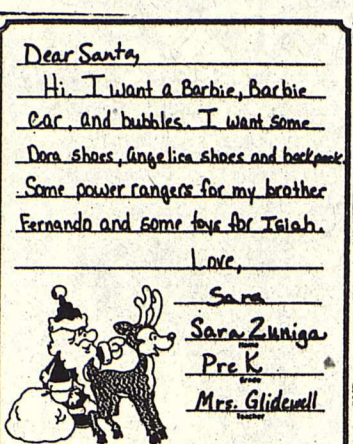 Dear Santa,
Hi. I want a Barbie, Barbie
car, and bubbles. I want some
Dora shoes, Angelica shoes and backpack.
Some power rangers for my brother
Fernando and some toys for Isiah.
Love,
Sara
Sara Zuniga
Name
Pre K
Grade
Mrs. Glidewell
Teacher